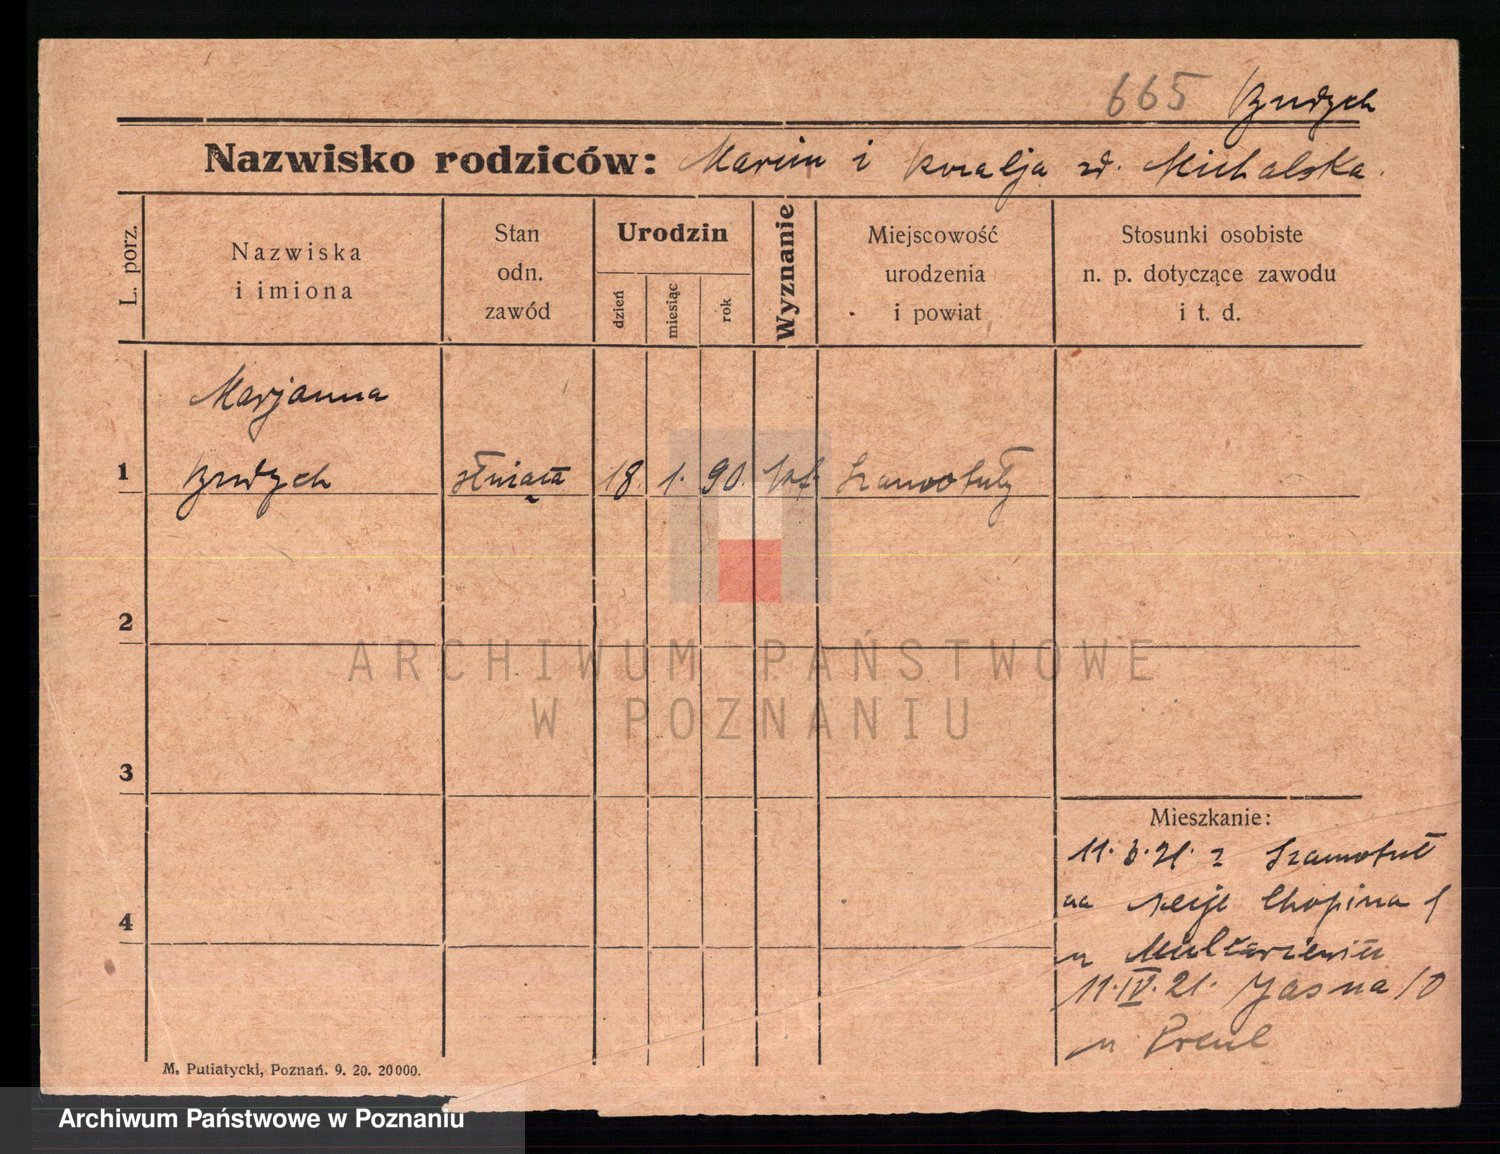 665 Brudzch
Nazwisko rodziców: Marcin i Rozalja zd. Michalska.
L. porz.
Nazwiska
i imiona
Stan
odn.
zawód
Urodzin
dzień
miesiąc
rok
Wyznanie
Miejscowość
urodzenia
i powiat
Stosunki osobiste
n. p. dotyczące zawodu
i t. d.
Marjanna
1 służąca 18. 1. 90. kat. Szamotuły
2
3
4
Mieszkanie:
11. 21. z Szamotuł
na Chopina
u
11.IV.21. Jasna 10
u
M. Putiatycki, Poznań. 9. 20. 20000.
ARCHIWUM PAŃSTWOWE
W POZNANIU
Archiwum Państwowe w Poznaniu